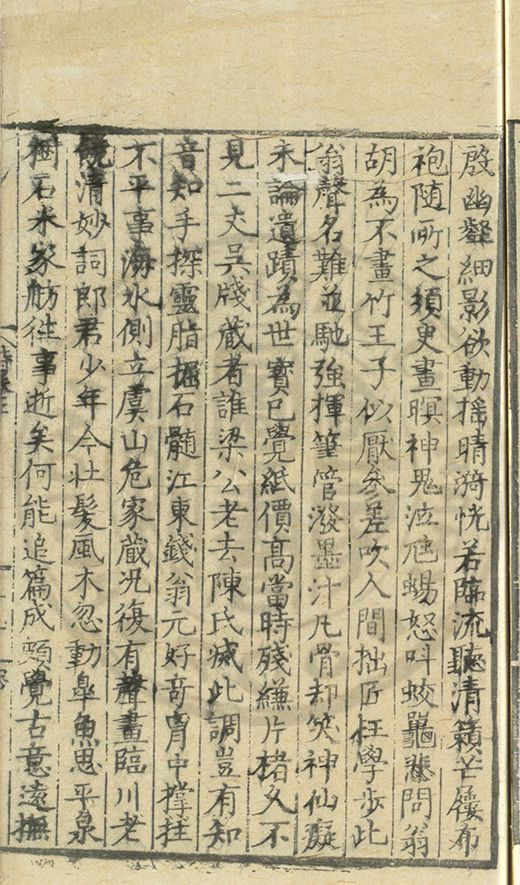 殷幽凝細影欲動搖晴漪恍若臨流聽清籟芒屨布
袍随所之須臾晝暝神鬼泣虺蜴怒叫蛟鼉悲問翁
胡為不畫竹王子似厭參差吹人間拙匠枉學步此
翁聲名難並馳強揮筆管潑墨汁凡骨却笑神仙癡
未論遺蹟為世寳已覺紙價髙當時殘縑片楮久不
見二丈呉牋蔵者誰梁公老去陳氏滅此調豈有知
音知手探靈脂掘石髓江東錢翁元好竒胷中撑拄
不平事海水側立虞山危家蔵况復有聲畫臨川老
清妙詞郎君少年今壮髪風木忽動臯魚思平泉
樹石米家舫徃事逝矣何能追篇成頗覺古意遠撫